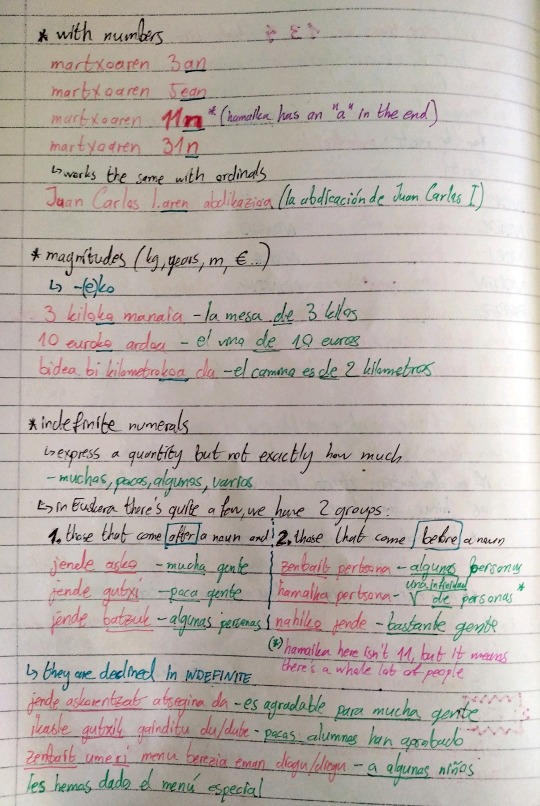 * with numbers
martxoaren 3an
martxoaren 5ean
martxoaren 11n * (hamaika has an "a" in the end)
martxoaren 31n
↳ works the same with ordinals
Juan Carlos I.aren abdikazioa (la abdicación de Juan Carlos I)
* magnitudes (kg, years, m, €...)
↳ -(e)ko
3 kiloko manaia - la mesa de 3 kilos
10 euroko ardoa - el vino de 10 euros
bidea bi kilometrokoa da - el camino es de 2 kilometros
* indefinite numerals
↳ express a quantity but not exactly how much
- muchas, pocas, algunas, varios
↳ in Euskera there's quite a few, we have 2 groups:
1. those that come after a noun and
jende asko - mucha gente
jende gutxi - poca gente
jende batzuk - algunas personas
2. those that come before a noun
zenbait pertsona - algunas personas
hamaika pertsona - una infinidad de personas *
nahiko jende - bastante gente
(*) hamaika here isn't 11, but it means
there's a whole lot of people
↳ they are declined in INDEFINITE
jende askorentzat atsegina da - es agradable para mucha gente
ikasle gutxik gainditu du/dute - pocos alumnos han aprobado
zenbait umeri menu berezia eman diogu/diegu - a algunos niños
les hemos dado el menú especial